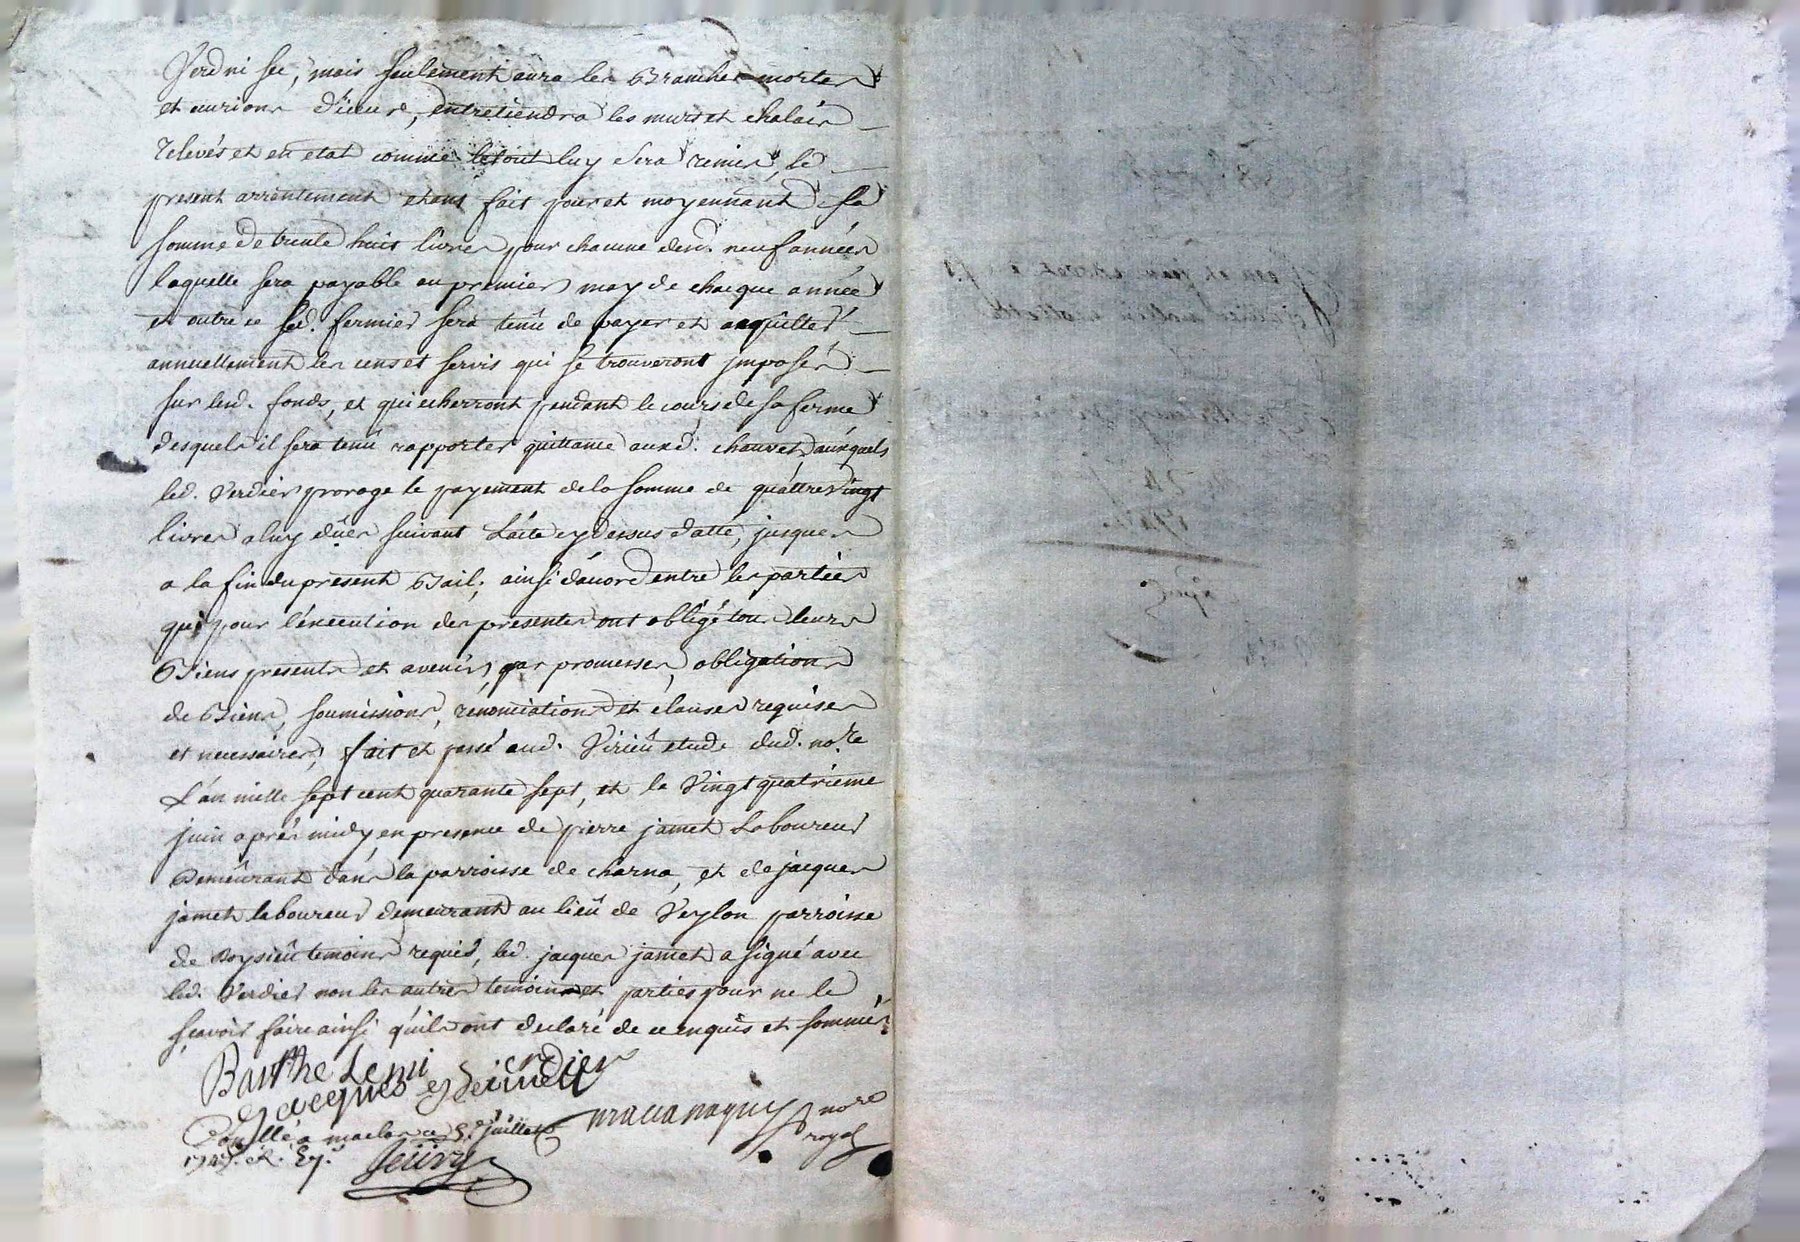 Verd ni sec, mais seulement aura les Branches mortes
et eurions d'iceux, entretiendra les murs et chalais
relevés et en etat comme le tout luy sera remis, le
present arrentement etant fait pour et moyennant la
somme de trente huit livres pour chacune desd. neuf années
laquelle sera payable au premier may de chacque année
et outre ce led. fermier sera tenû de payer et acquitter
annuellement les cens et servis qui se trouveront jmposés
sur lesd. fonds, et qui echerront pendant le cours de sa ferme
desquels il sera tenû rapporter quittance auxd. chauvet, auxquels
led. Verdier proroge le payement de la somme de quattre vingt
livres a luy dües suivant l'acte cy dessus datté, jusques
a la fin du présent Bail, ainsi d'acord entre les parties
qui pour l'éxécution des presentes ont obligé tous leurs
Biens presents et avenir, par promesses, obligations
de Biens, soumissions, rénonciations et clauses requises
et necessaires, fait et passé aud. Virieû etude dud. no.re
L'an mille sept cent quarante sept, et le Vingt quatrième
juin après midy en presence de pierre jamet Laboureur
Demeûrant dans la parroisse de charna, et de jacques
jamet laboureur demeurant au lieû de Veylon parroisse
de Roysieû temoins requis, led. jacques jamet a signé avec
led. Verdier non les autres temoins et parties pour ne le
sçavoir faire ainsi qu'ils ont declaré de ce enquis et sommés
Barthelemi Verdier
Jacques
no.re
royal
Conllé a maclas ce 5e juillet
1747. R.